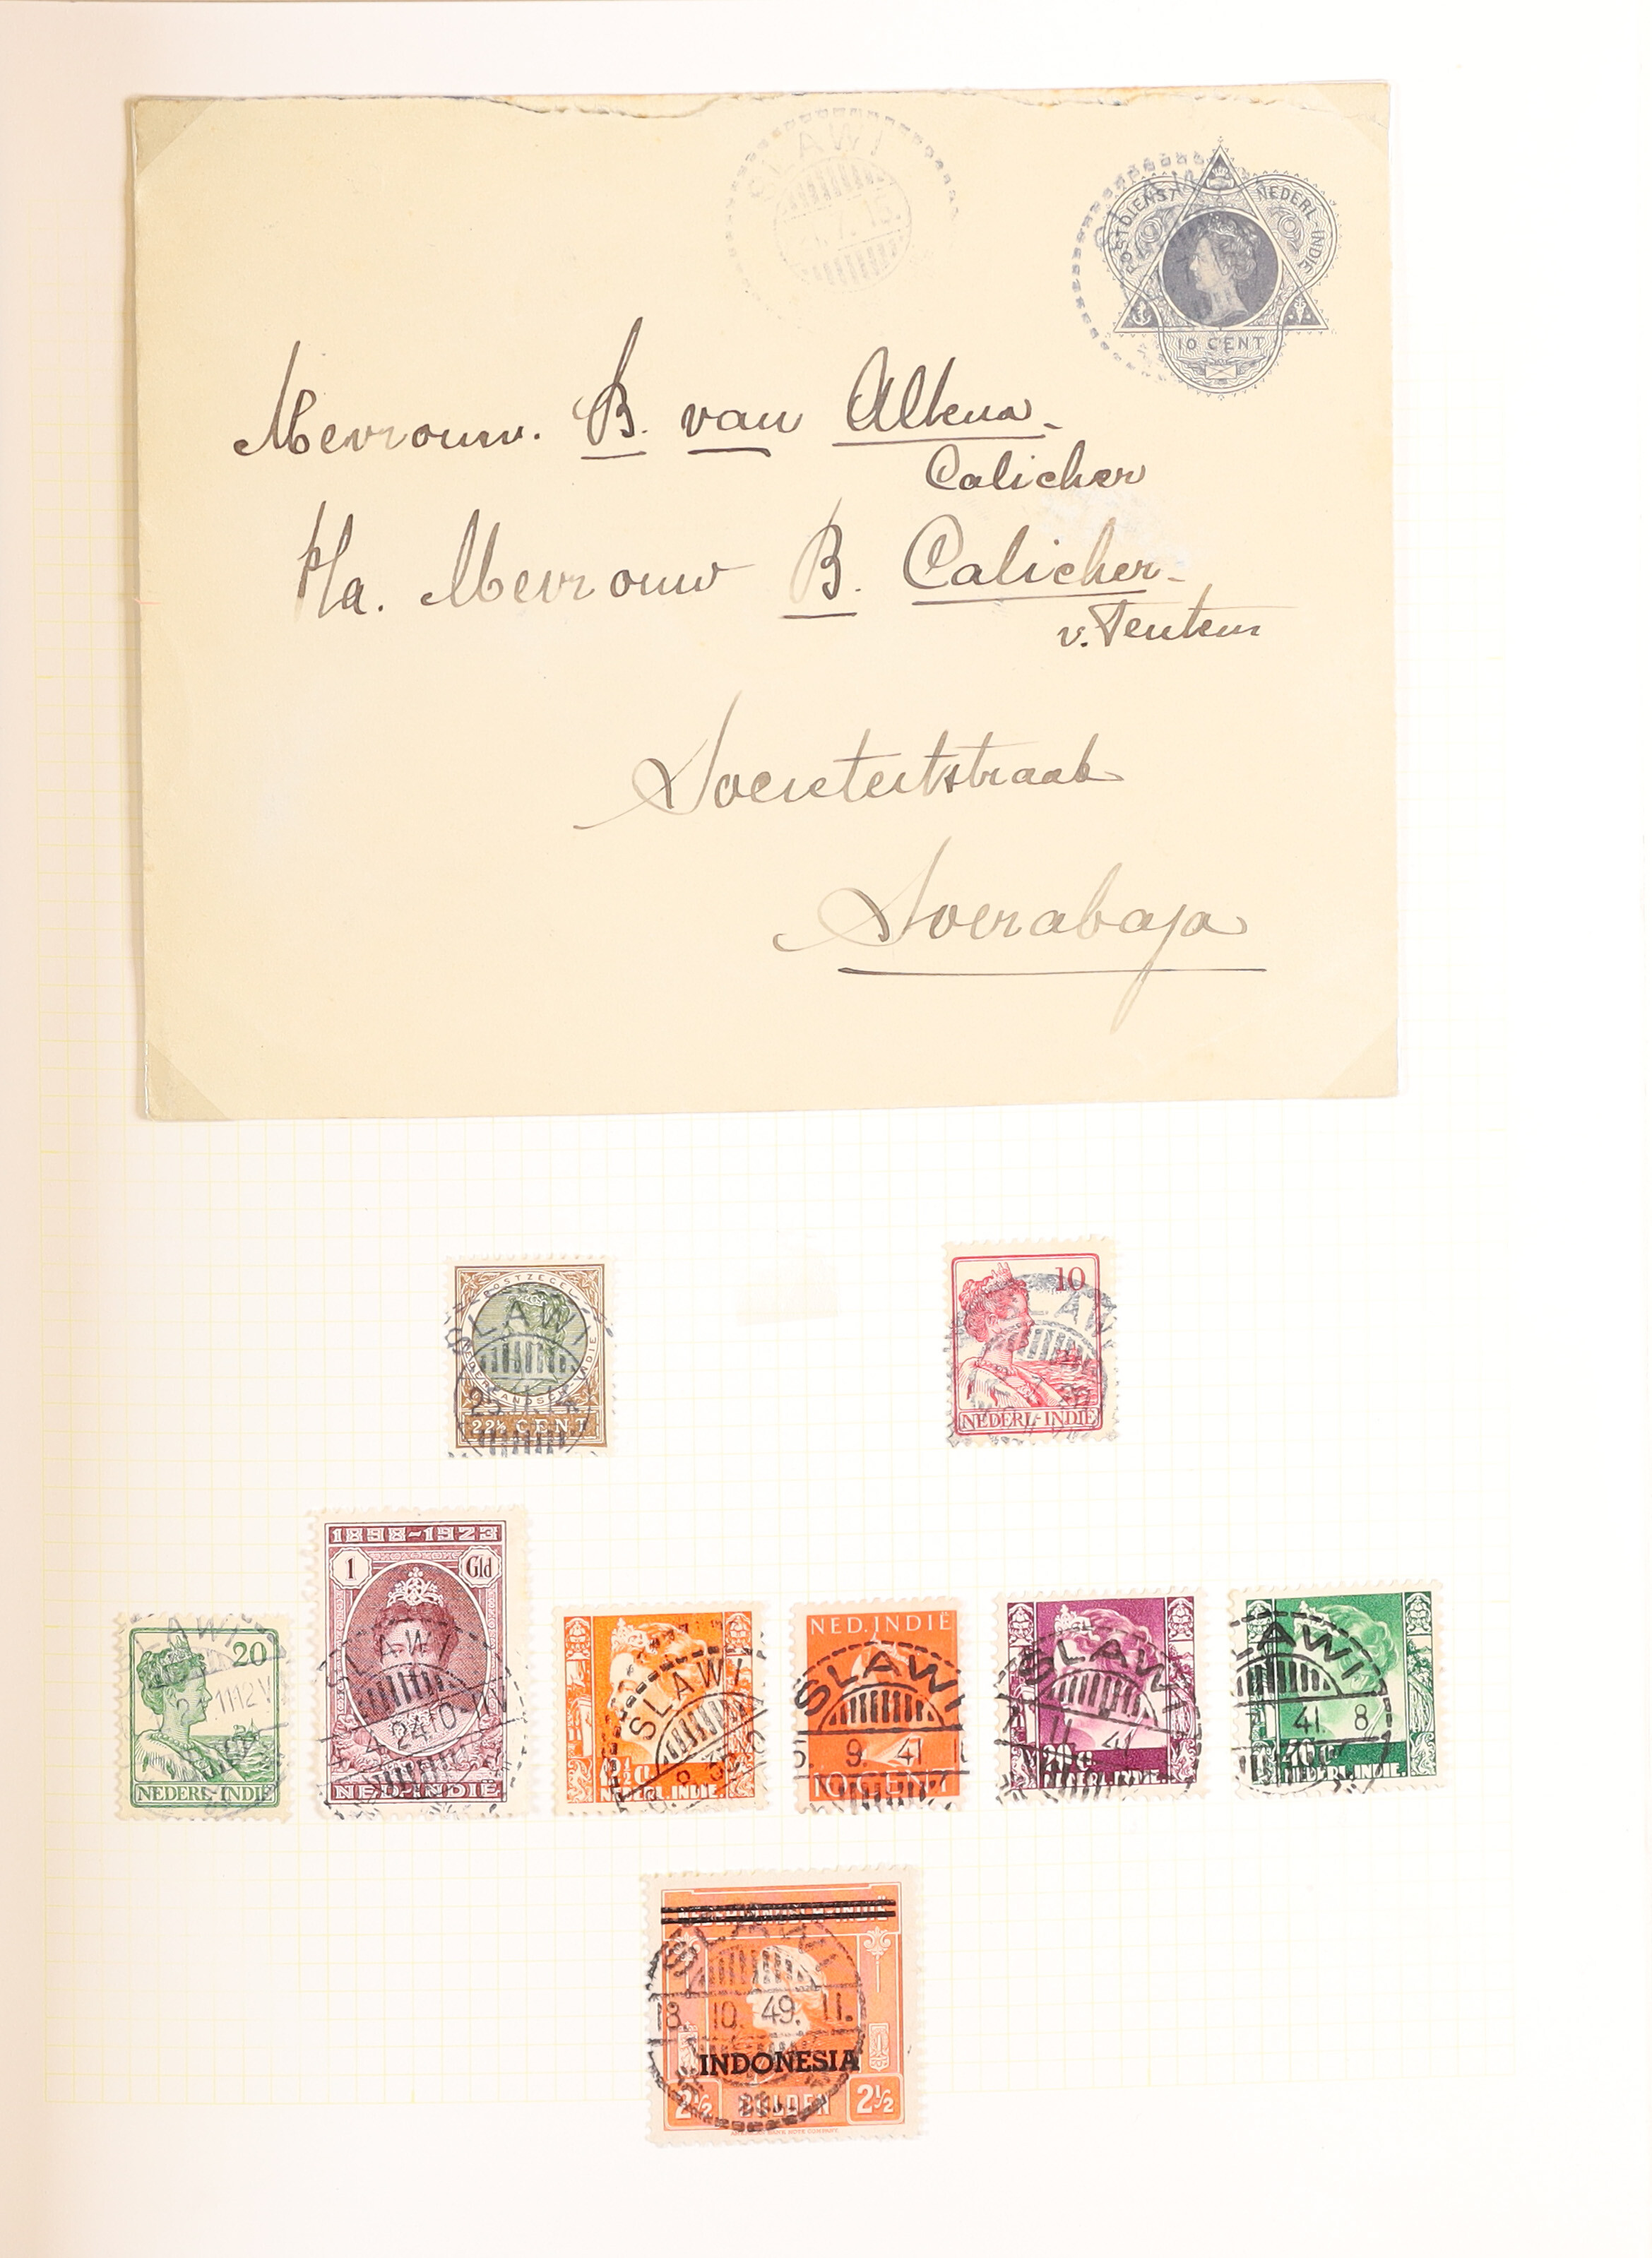 SLAWI
7. 15.
POSTDIENST NEDERL-INDIE
10 CENT
Mevrouw. B. van Alkena-
Calicher
p/a. Mevrouw B. Calicher-
Societeitstraat
Soerabaja
POSTZEGEL
SLAWI
22½ CENT
10
LAW
NEDERL-INDIE
LAWI
20
NEDERL-INDIE
1898-1923
1 Gld
SLAWI
4 4 24 10
NED-INDIE
SLAWI
NEDERL.INDIE.
NED. INDIË
SLAWI
9. 41
10 CENT
SLAWI
11 41
20c
NEDERL.INDIE.
LAWI
41. 8
40c
NEDERL.INDIE.
SLAWI
8. 10. 49. 11.
INDONESIA
2½ GULDEN 2½
AMERICAN BANK NOTE COMPANY